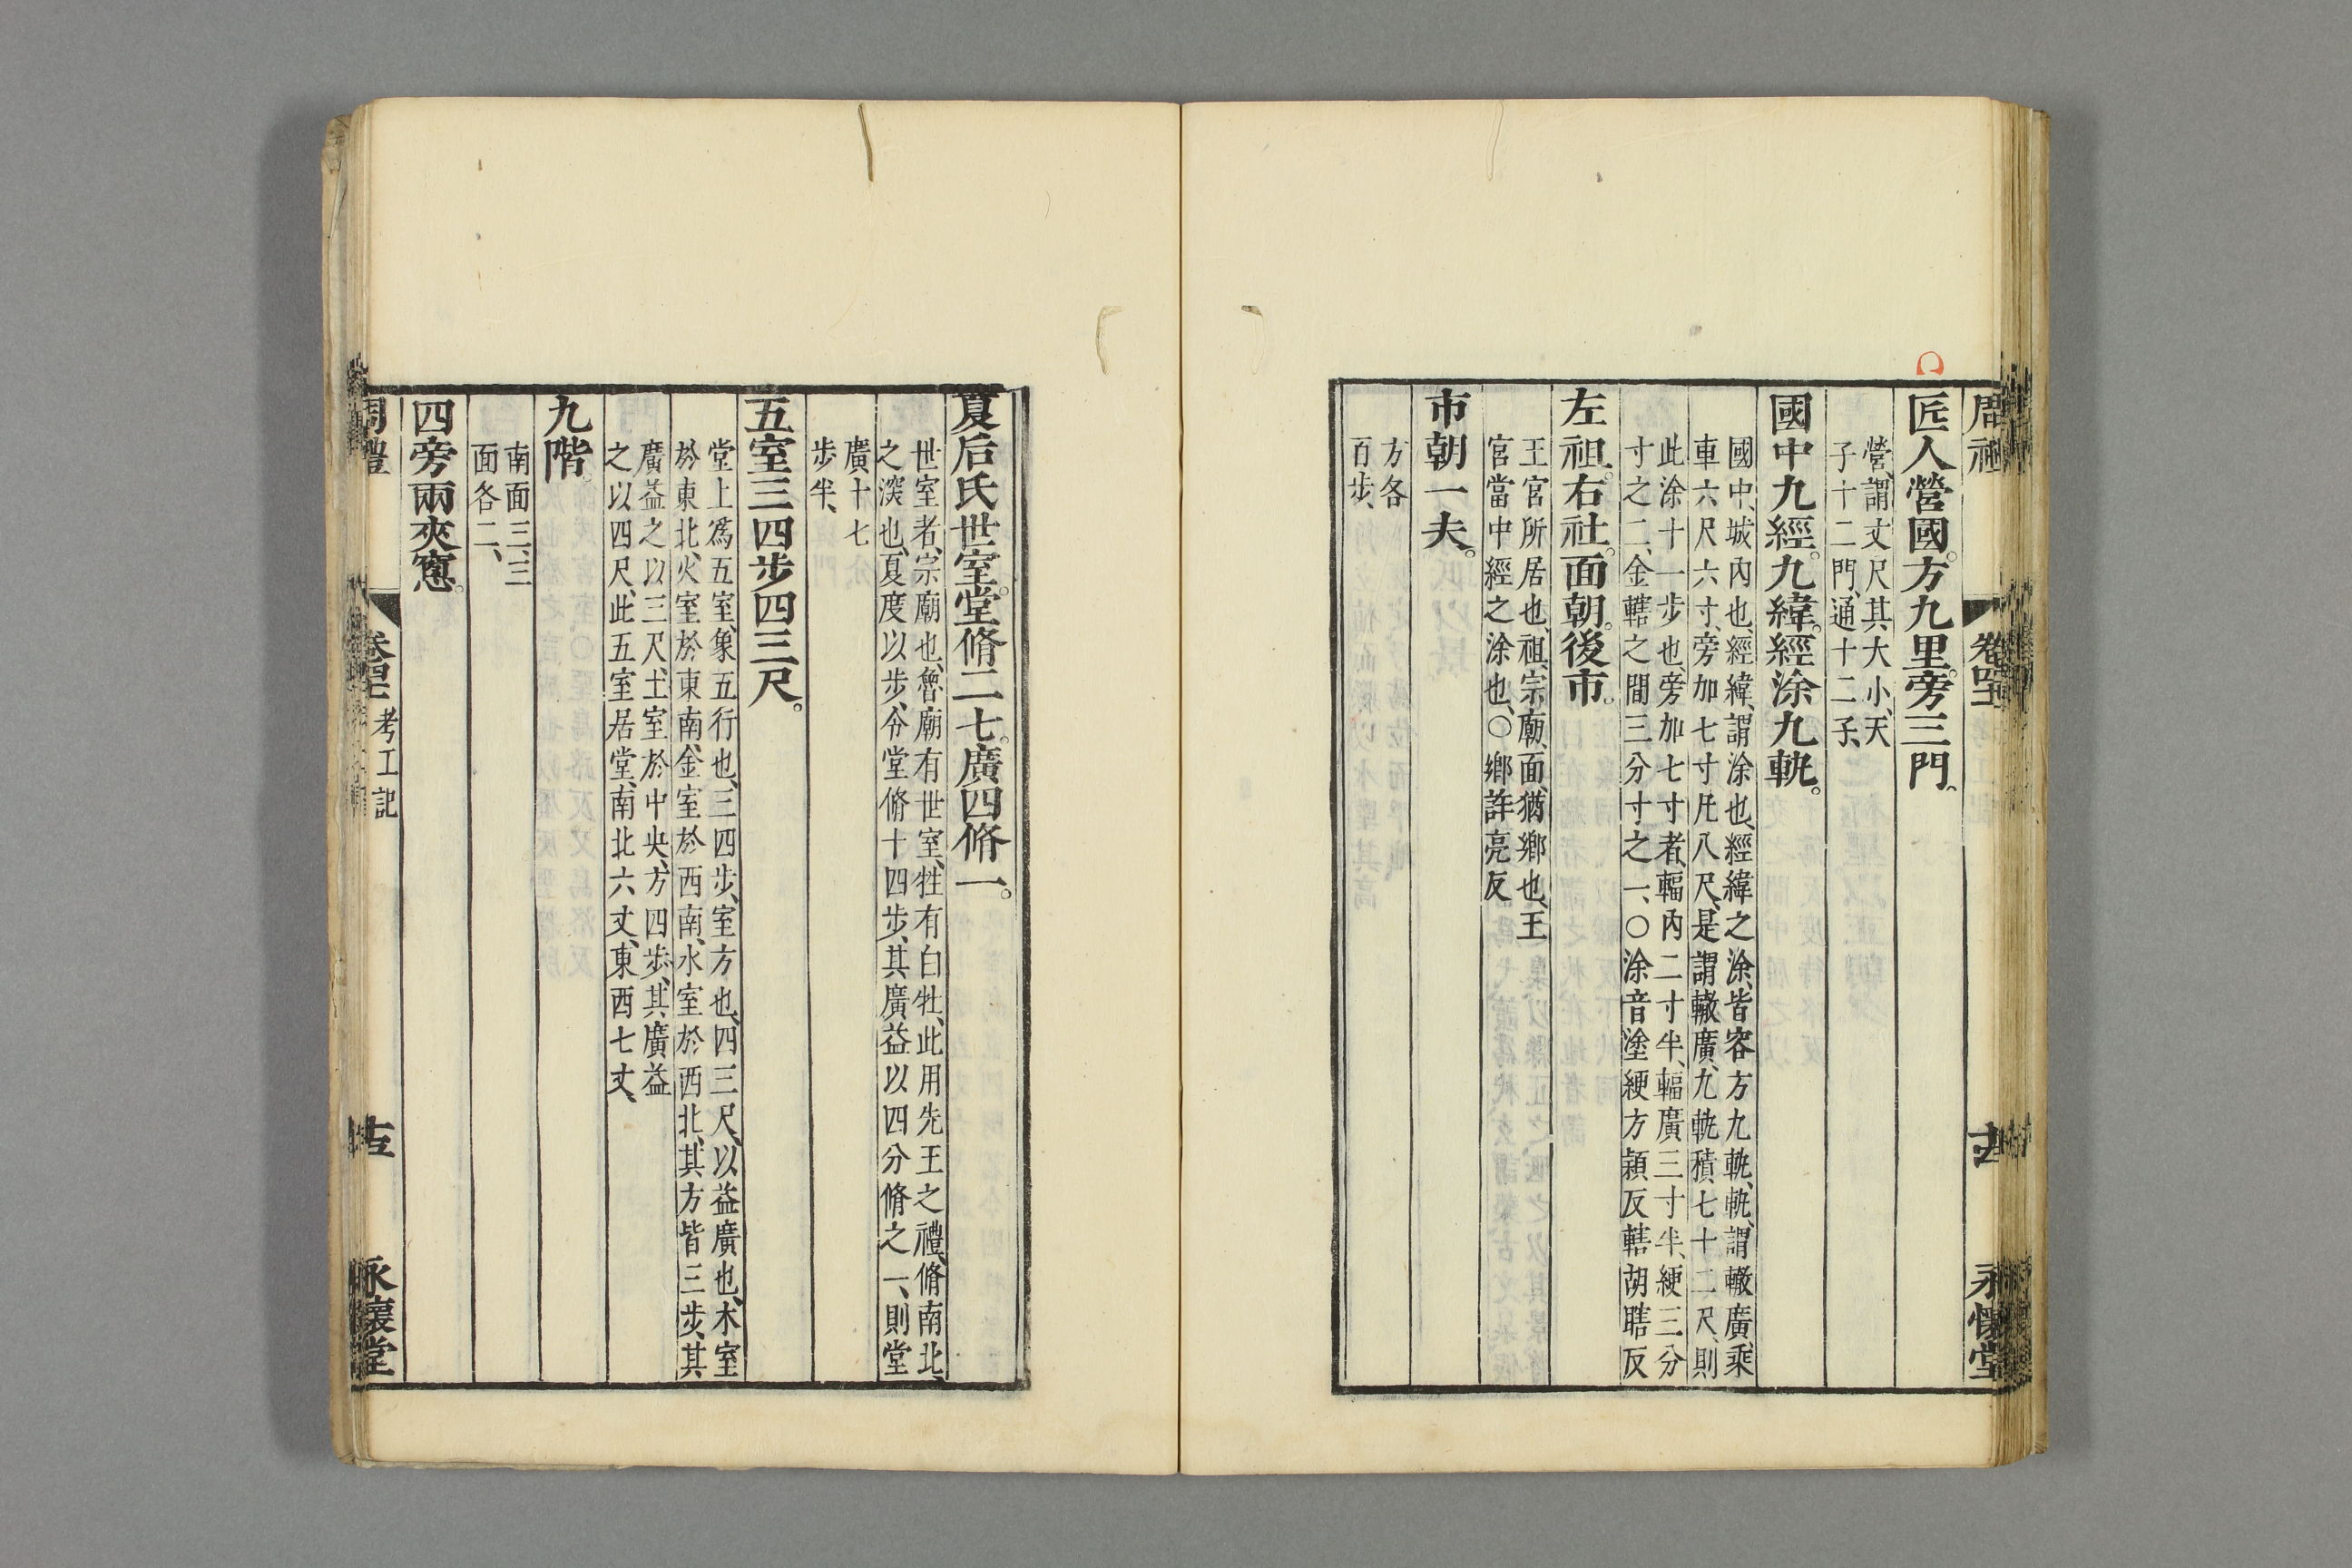 匠人營國。方九里。旁三門。
營、謂丈尺其大小、天
子十二門、通十二子、
國中九經。九緯。經涂九軌。
國中、城內也、經緯、謂涂也、經緯之涂、皆容方九軌、軌、謂轍廣、乘
車六尺六寸、旁加七寸、凡八尺、是謂轍廣、九軌積七十二尺、則
此涂十二步也、旁加七寸者、輻內二寸半、輻廣三寸半、綆三分
寸之二、金轄之間三分寸之一、○涂音塗綆方穎反轄胡瞎反
左祖。右社。面朝。後市。
王宮所居也、祖、宗廟、面、猶鄉也、王
宮當中經之涂也、○鄉許亮反
市朝一夫。
方各
百步、
夏后氏世室。堂脩二七。廣四脩一。
世室者、宗廟也、魯廟有世室、牲有白牡、此用先王之禮、脩南北、
之深也、夏度以步、令堂脩十四步、其廣益以四分脩之一、則堂
廣十七
步半、
五室三四步四三尺。
堂上爲五室、象五行也、三四步、室方也、四三尺、以益廣也、木室
於東北、火室於東南、金室於西南、水室於西北、其方皆三步、其
廣益之以三尺、土室於中央、方四步、其廣益
之以四尺、此五室居堂、南北六丈、東西七丈、
九階。
南面三、三
面各二、
四旁兩夾窻。
周禮
卷四十一 考工記
十五
永懷堂